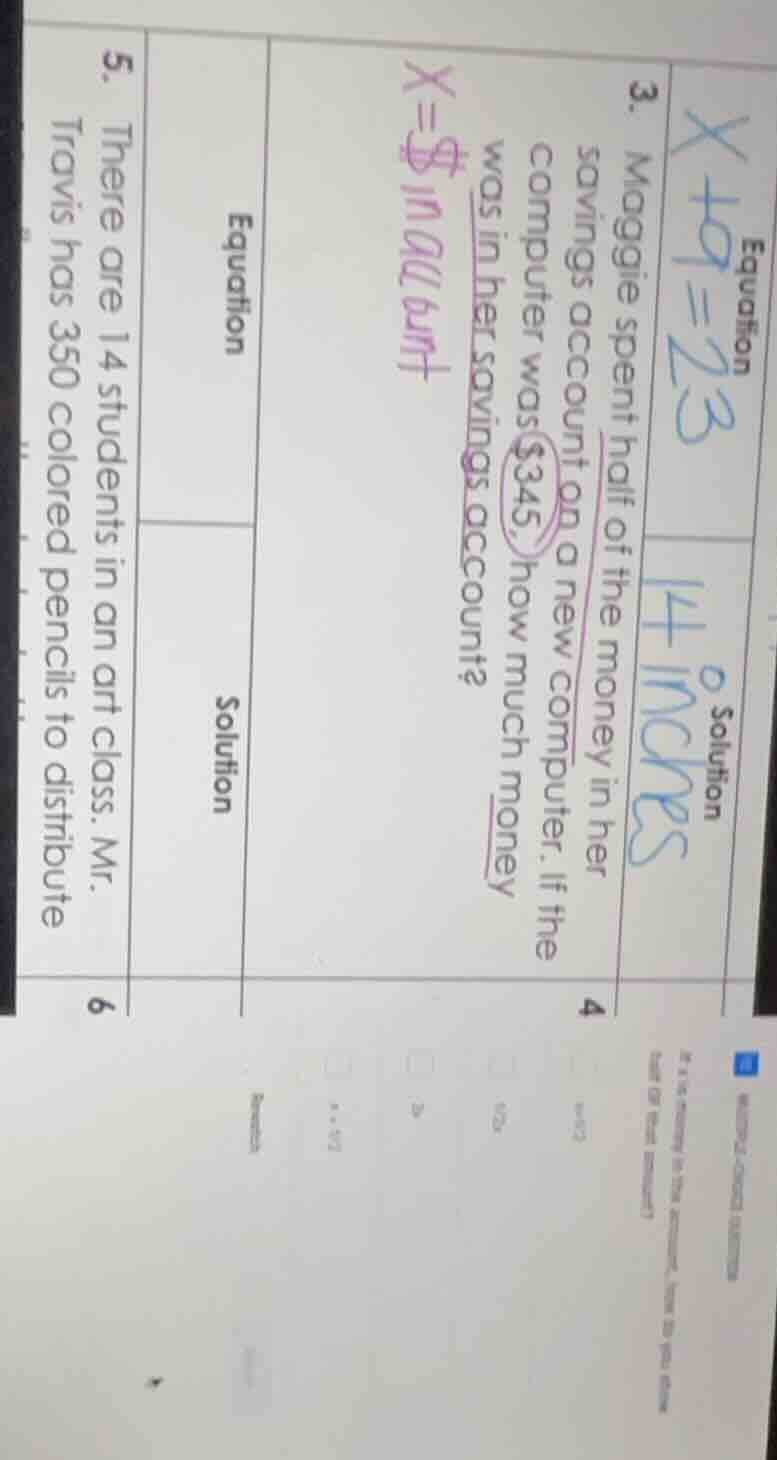 Equation
Solution
x + 9 = 23
14 inches
3. Maggie spent half of the money in her
savings account on a new computer. If the
computer was $345, how much money
was in her savings account?
X = $ in account
4
Equation
Solution
5. There are 14 students in an art class. Mr.
Travis has 350 colored pencils to distribute
6
MULTIPLE-CHOICE QUESTION
If x is money in the account, how do you show
half OF that amount?
1/2x
2x
Rewatch